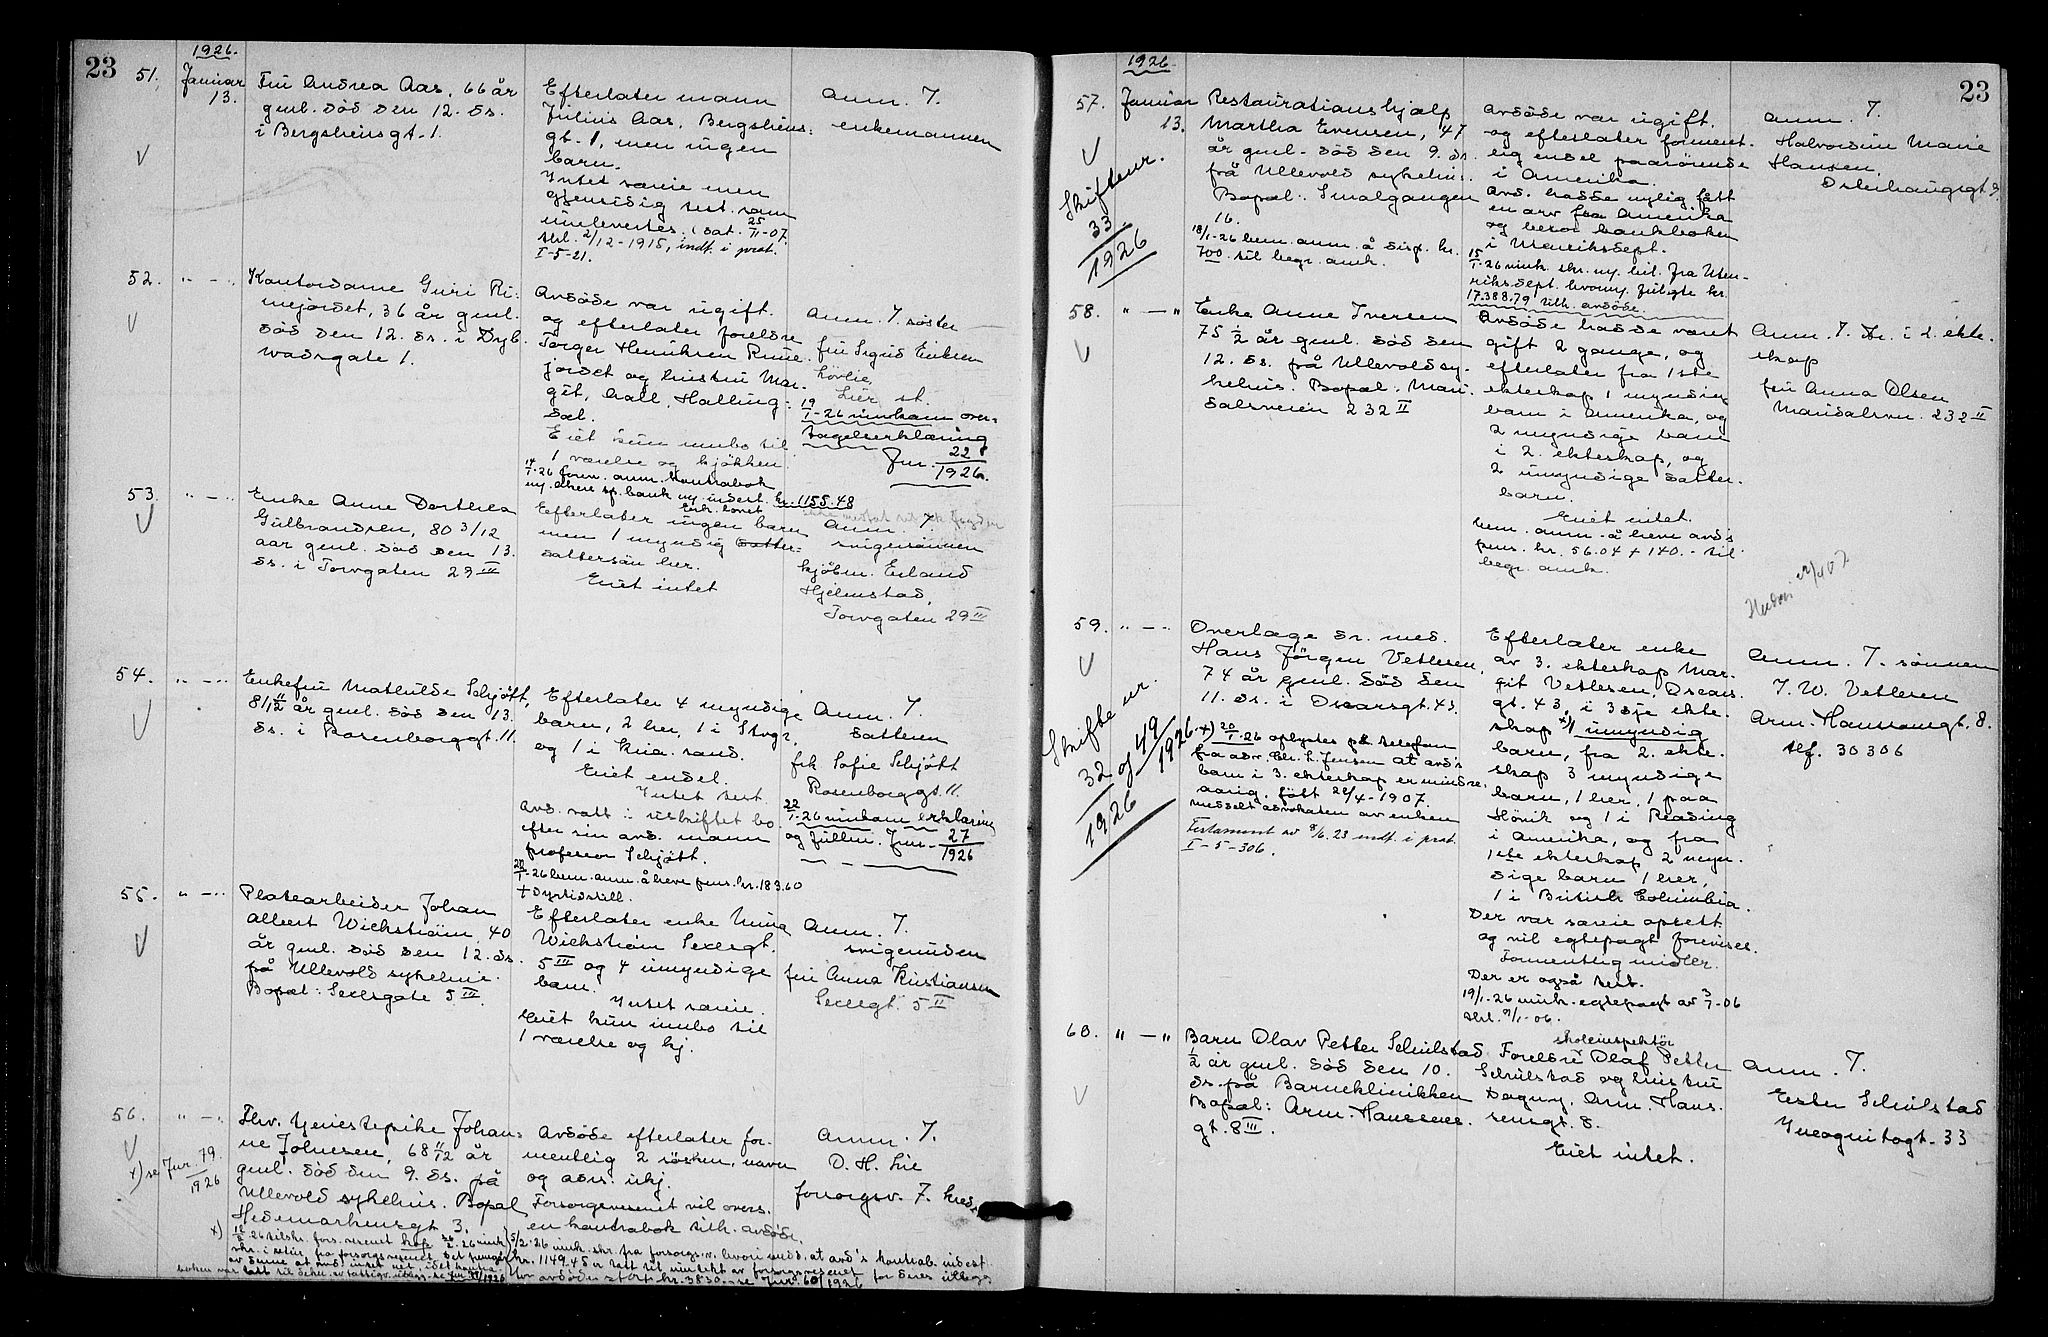 23
1926.
51.
Januar
13.
Fru Andrea Aas, 66 år
gml. död den 12. ds.
i Bergsliensgt. 1.
Efterlater mann
Julius Aas, Bergsliens-
gt. 1, men ingen
barn.
Intet særeie men
gjensidig test. som
innlevertes. (dat. 25/II-07.
thl. 2/12-1915, indt. i prot.
I-5-21.
Anm. 7.
enkemannen
52.
" — "
Kontordame Guri Ri-
mejordet, 36 år gml.
död den 12. ds. i Dyb-
wadsgate 1.
Avdöde var ugift.
og efterlater foreldre
Torger Henriksen Rime-
jordet og hustru Mar-
git, Aall, Halling-
dal.
Eiet kun innbo til
1 værelse og kjökken
14/1-26 forev. anm. kontrabok
Anm. 7. söster
fru Sigrid Eriksen
Lövlie,
Lier st.
19/1-26 innkom over-
tagelseerklæring
Jnr. 228/1926.
kr. 1155.48
53.
" — "
Enke Anne Dorthea
Gulbrandsen, 80 3/12
aar gml. död den 13.
ds. i Torvgaten 29 III
Efterlater ingen barn
men 1 myndig datter-
dattersön her.
Eiet intet
Anm. 7.
svigersönnen
kjöbm. Erland
Hjelmstad,
Torvgaten 29 III
54.
" — "
Enkefru Mathilde Schjött,
81 11/12 år gml. död den 13.
ds. i Rosenborggt. 11.
Efterlater 4 myndige
barn, 2 her, 1 i Stvgr,
og 1 i Kria. sand.
Eiet endel.
Intet test.
Avd. satt i uskiftet bo
efter sin avd. mann
professor Schjött.
20/1-26 bem. anm. å heve pens. kr. 183.60
+ dyrtidstill.
Anm. 7.
datteren
frk Sofie Schjött
Rosenborggt. 11.
22/1-26 innkom erklæring
og fullm. Jnr. 27/1926
55.
" — "
Platearbeider Johan
Albert Wickström, 40
år gml. död den 12. ds.
på Ullevold sykehus.
Bopæl: Sexesgate 5 III.
Efterlater enke Anna
Wickström Sexesgt.
5 III og 4 umyndige
barn.
Intet særeie.
Eiet kun innbo til
1 værelse og kj.
Anm. 7.
svigerinden
fru Anna Kristiansen
Sexesgt. 5 II
56.
" — "
x) se Jnr. 79./1926
Fhv. tjenestepike Johan-
ne Johnesen, 68 11/12 år
gml. död den 9. ds. på
Ullevold sykehus. Bopæl
Hedemarkensgt 3.
Avdöde efterlater for-
mentlig 2 söken, navn
og adrs. ukj.
Forsorgsvesenet vil overs.
en kontrabok tilh. avdöde.
Anm. 7.
O. H. Lie
forsorgsv. 7. kreds
23
1926.
57.
Januar
13.
Skiftenr.
33/1926
Restaurationshjælp
Martha Evensen, 47
år gml. död den 9. ds.
på Ullevold sykehus.
Bopæl: Smalgangen
16.
18/1-26 bem. anm. å disp. kr.
700 til begr. omk.
Avdöde var ugift.
og efterlater forment-
lig endel paarörende
i Amerika.
Avd. hadde nylig fått
en arv fra Amerika
og beror bankboken
i Utenriksdept.
15/1-26 innk. skr. m. bil. fra Uten-
riksdept. hvorav fulgte kr.
17.388.79 tilh. avdöde.
Anm. 7.
Halvordine Marie
Hansen,
Osterhausgt 9
58.
" — "
Enke Anne Iversen
75 1/2 år gml. död den
12. ds. på Ullevold sy-
kehus. Bopæl: Mari-
dalsveien 232 II
Avdöde hadde været
gift 2 gange, og
efterlater fra 1ste
ekteskap 1 myndig
barn i Amerika, og
2 myndige barn
i 2. ekteskap, og
2 umyndige datter-
barn.
Eiet intet.
bem. anm. å heve avd's
pens. kr. 56.04 + 140.- til
begr. omk.
Anm. 7. dtr. i 2. ekte-
skap
fru Anna Olsen
Maridalsvn. 232 II
59.
" — "
Skifte nr.
32 og 49/1926
1926
Overlæge dr. med.
Hans Jörgen Vetlesen,
74 år gml. död den
11. ds. i Oscarsgt. 43.
x) 20/1-26 oplystes pr. telefon
fra adv. Chr. L. Jensen at avd's
barn i 3. ekteskap er mindre-
aarig, född 22/4-1907.
Testament av 9/6.23 indt. i prot.
I-5-306.
Efterlater enke
av 3. ekteskap Mar-
git Vetlesen, Oscars-
gt. 43, i 3dje ekte-
skap x) 1 umyndig
barn, fra 2. ekte-
skap 3 myndige
barn, 1 her, 1 paa
Hövik og 1 i Reading
i Amerika, og fra
1ste ekteskap 2 myn-
dige barn 1 her,
1 i British Columbia.
Der var særeie oprett.
og vil egtepagt forevises.
Formentlig midler.
Der er også test.
19/1-26 innk. egtepagt av 3/1-06
thl. 9/1-06.
Anm. 7. sönnen
J. W. Vetlesen
Arm. Hanssensgt. 8.
tlf. 30306
60.
" — "
Barn Olav Petter Schulstad
1/2 år gml. död den 10.
ds. på Barneklinikken
Bopæl: Arm. Hanssens-
gt. 8 III.
skoleinspektör
Foreldre Olaf Petter
Schulstad og hustru
Dagny, Arm. Hans-
sensgt. 8.
Eiet intet.
Anm. 7.
Ester Schulstad
Incognitogt. 33